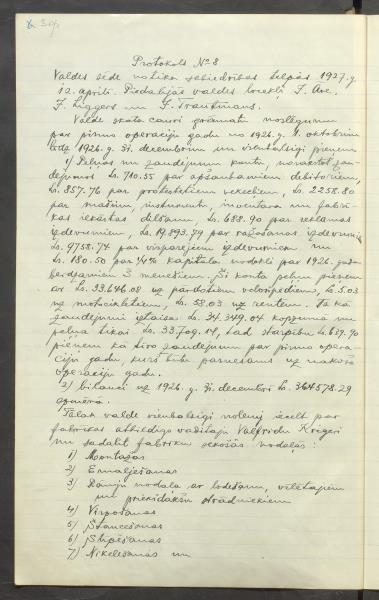 Protokols № 8
Valdes sēde notika sabiedrības telpās 1927. g.
12. aprīlī. Piedalījās valdes locekļi J.
F. Liggers un F. Trautmans.
Valde skata cauri grāmatu noslēgumu
par pirmo operāciju gadu no 1926. g. 1. oktobrim
līdz 1926. g. 31. decembrim un vienbalsīgi pieņem
1) Peļņas un zaudējumu kontu, norakstot zau-
dējumos Ls. 710.55 par apšaubāmiem debitoriem,
Ls. 857.76 par protestētiem vekseļiem, Ls. 2258.80
par mašīnu, instrumentu, inventāra un fabri-
kas iekārtas dilšanu, Ls. 688.90 par reklāmas
izdevumiem, Ls. 19,893.79 par ražošanas izdevumiem
Ls. 9758.74 par vispārējiem izdevumiem un
Ls. 180.50 par kapitāla nodokli par 1926. gada
3 mēnešiem. Šī konta peļņu pieņem
ar Ls. 33.646.08 uz pārdotiem velosipēdiem, Ls. 5.03
uz motocikletiem, Ls. 58.03 uz rentēm. Tā kā
zaudējumi iztaisa Ls. 34.349.04 kopsumā un
peļņa tikai Ls. 33.709.14, tad starpību Ls. 639.90
pieņem kā tīro zaudējumu par pirmo operā-
ciju gadu, kurš būtu pārnesams uz nākošo
operāciju gadu.
2) bilanci uz 1926. g. 31. decembri Ls. 364578.29
apmērā.
Tālāk valde vienbalsīgi nolēma iecelt par
fabrikas atbildīgo vadītāju Valfrīdu Krīgeri
un sadalīt fabriku sekošās nodaļās:
1) Montāžas
2) Emaljēšanas
3) nodaļa ar lodēšanu, vīlētājiem
un priekšdakšu strādniekiem
4) Virpošanas
5) Štancēšanas
6) Slīpēšanas
7) Niķelēšanas un